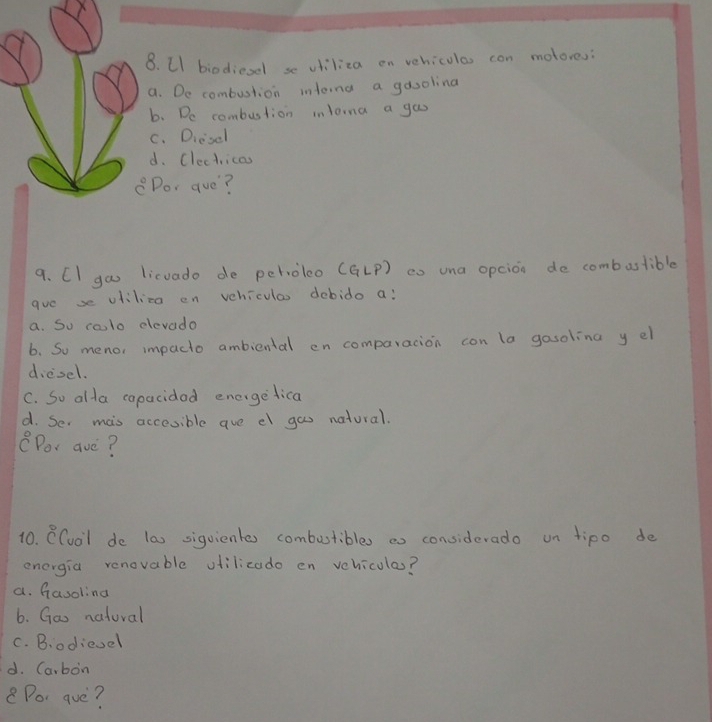 8. El biodiesel se utiliza en vehículos con motores:
a. De combustión interna a gasolina
b. De combustion interna a gas
c. Diésel
d. Electricos
¿Por qué?
9. El gas licuado de petróleo (GLP) es una opción de combustible
que se utiliza en vehículos debido a:
a. Su costo elevado
b. Su menor impacto ambiental en comparación con la gasolina y el
diésel.
c. Su alta capacidad energética
d. Ser más accesible que el gas natural.
¿Por qué?
10. ¿Cuál de los siguientes combustibles es considerado un tipo de
energía renovable utilizado en vehículos?
a. Gasolina
b. Gas natural
c. Biodiesel
d. Carbón
¿Por qué?